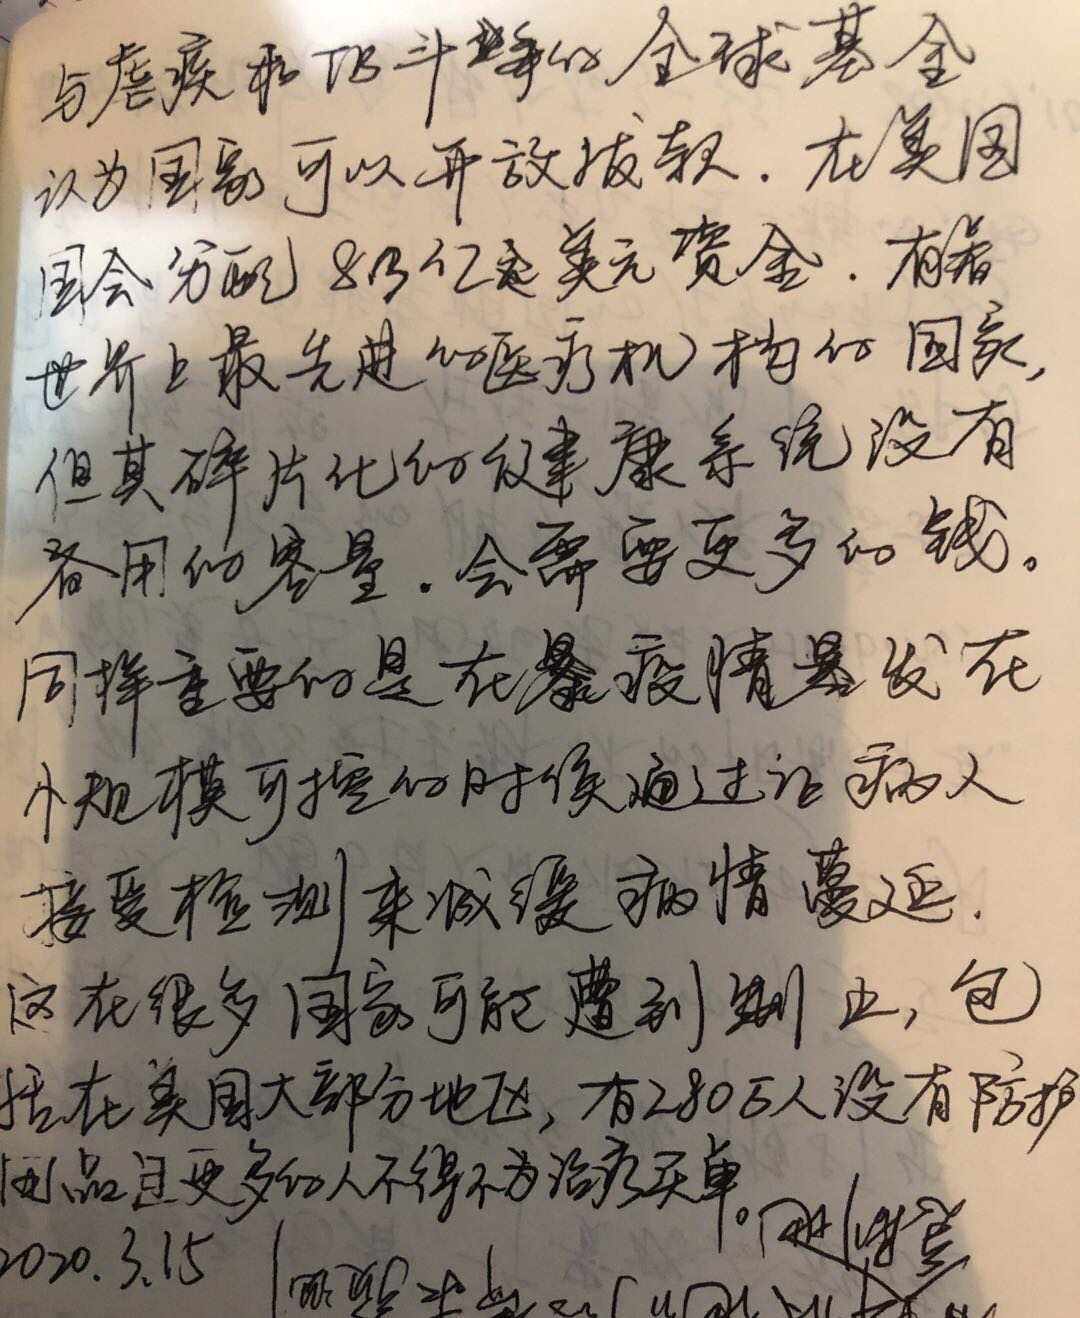 与疟疾和TB斗争的全球基金
认为国家可以开放拨款.在美国
国会分配83亿美元资金.有着
世界上最先进的医疗机构的国家,
但其碎片化的健康系统没有
备用的容量.会需要更多的钱。
同样重要的是在疫情暴发在
小规模可控的时候通过让病人
接受检测来减缓病情蔓延.
这在很多国家可能遭到制止,包
括在美国大部分地区,有280万人没有防护
用品且更多的人不得不为治疗买单。
2020.3.15